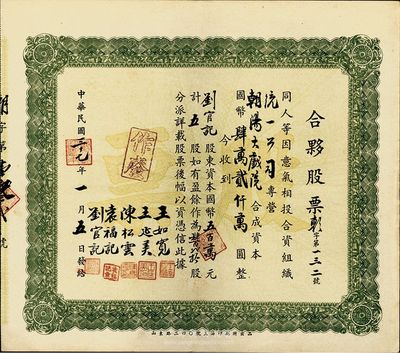 合夥股票 朝字第一三二號
同人等因意氣相投合資組織
統一公司專營
朝陽大戲院合成資本
國幣肆萬貳仟萬圓整
今收到
劉官記股東資本國幣五百萬元
計五股如有盈餘作為股
分派詳載股票後幅以資憑信此據
王如寬
王
陳松雲
袁福記
劉官記
中華民國年一月五日發給
作廢
字第
號